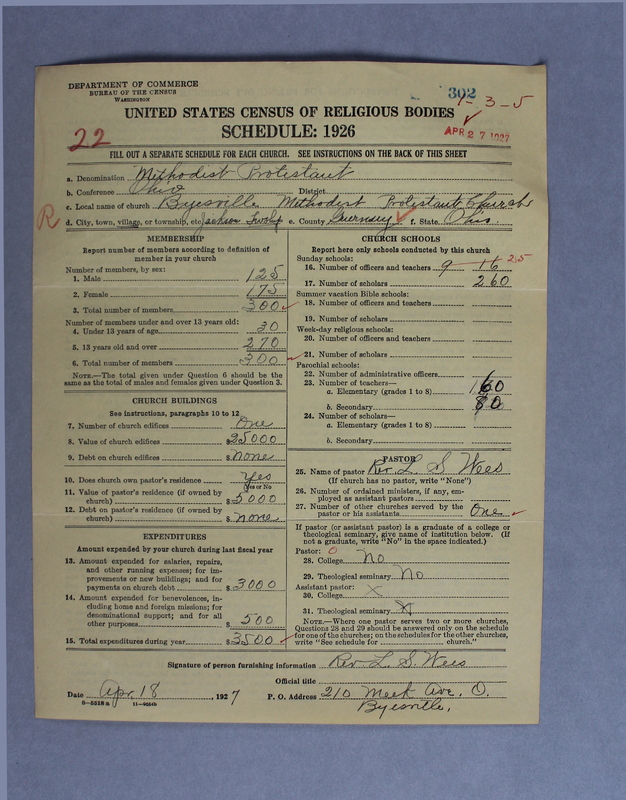 DEPARTMENT OF COMMERCE
BUREAU OF THE CENSUS
WASHINGTON
302
1-3-5
UNITED STATES CENSUS OF RELIGIOUS BODIES
SCHEDULE: 1926
22
APR 27 1927
FILL OUT A SEPARATE SCHEDULE FOR EACH CHURCH. SEE INSTRUCTIONS ON THE BACK OF THIS SHEET
a. Denomination Methodist Protestant
b. Conference Ohio District
c. Local name of church Byesville Methodist Protestant Church
R
d. City, town, village, or township, etc Jackson Twolp e. County Guernsey f. State Ohio
MEMBERSHIP
Report number of members according to definition of
member in your church
Number of members, by sex:
1. Male 125
2. Female 175
3. Total number of members 300
Number of members under and over 13 years old:
4. Under 13 years of age 30
5. 13 years old and over 270
6. Total number of members 300
NOTE.—The total given under Question 6 should be the
same as the total of males and females given under Question 3.
CHURCH BUILDINGS
See instructions, paragraphs 10 to 12
7. Number of church edifices One
8. Value of church edifices $25000
9. Debt on church edifices $none
10. Does church own pastor's residence Yes
(Yes or No)
11. Value of pastor's residence (if owned by
church) $5000
12. Debt on pastor's residence (if owned by
church) $none
EXPENDITURES
Amount expended by your church during last fiscal year
13. Amount expended for salaries, repairs,
and other running expenses; for im-
provements or new buildings; and for
payments on church debt $3000
14. Amount expended for benevolences, in-
cluding home and foreign missions; for
denominational support; and for all
other purposes $500
15. Total expenditures during year $3500
CHURCH SCHOOLS
Report here only schools conducted by this church
Sunday schools:
16. Number of officers and teachers 9 16 25
17. Number of scholars 260
Summer vacation Bible schools:
18. Number of officers and teachers
19. Number of scholars
Week-day religious schools:
20. Number of officers and teachers
21. Number of scholars
Parochial schools:
22. Number of administrative officers
23. Number of teachers—
a. Elementary (grades 1 to 8)
b. Secondary
24. Number of scholars—
a. Elementary (grades 1 to 8)
b. Secondary
PASTOR
25. Name of pastor Rev. L. S. Wees
(If church has no pastor, write "None")
26. Number of ordained ministers, if any, em-
ployed as assistant pastors
27. Number of other churches served by the
pastor or his assistants One
If pastor (or assistant pastor) is a graduate of a college or
theological seminary, give name of institution below. (If
not a graduate, write "No" in the space indicated.)
Pastor: 0
28. College No
29. Theological seminary No
Assistant pastor:
30. College X
31. Theological seminary X
NOTE.—Where one pastor serves two or more churches,
Questions 28 and 29 should be answered only on the schedule
for one of the churches; on the schedules for the other churches,
write "See schedule for church."
Signature of person furnishing information Rev. L. S. Wees
Official title
Date Apr 18, 1927 P. O. Address 210 Meek Ave, O.
Byesville,
8—5518 a 11—9054b